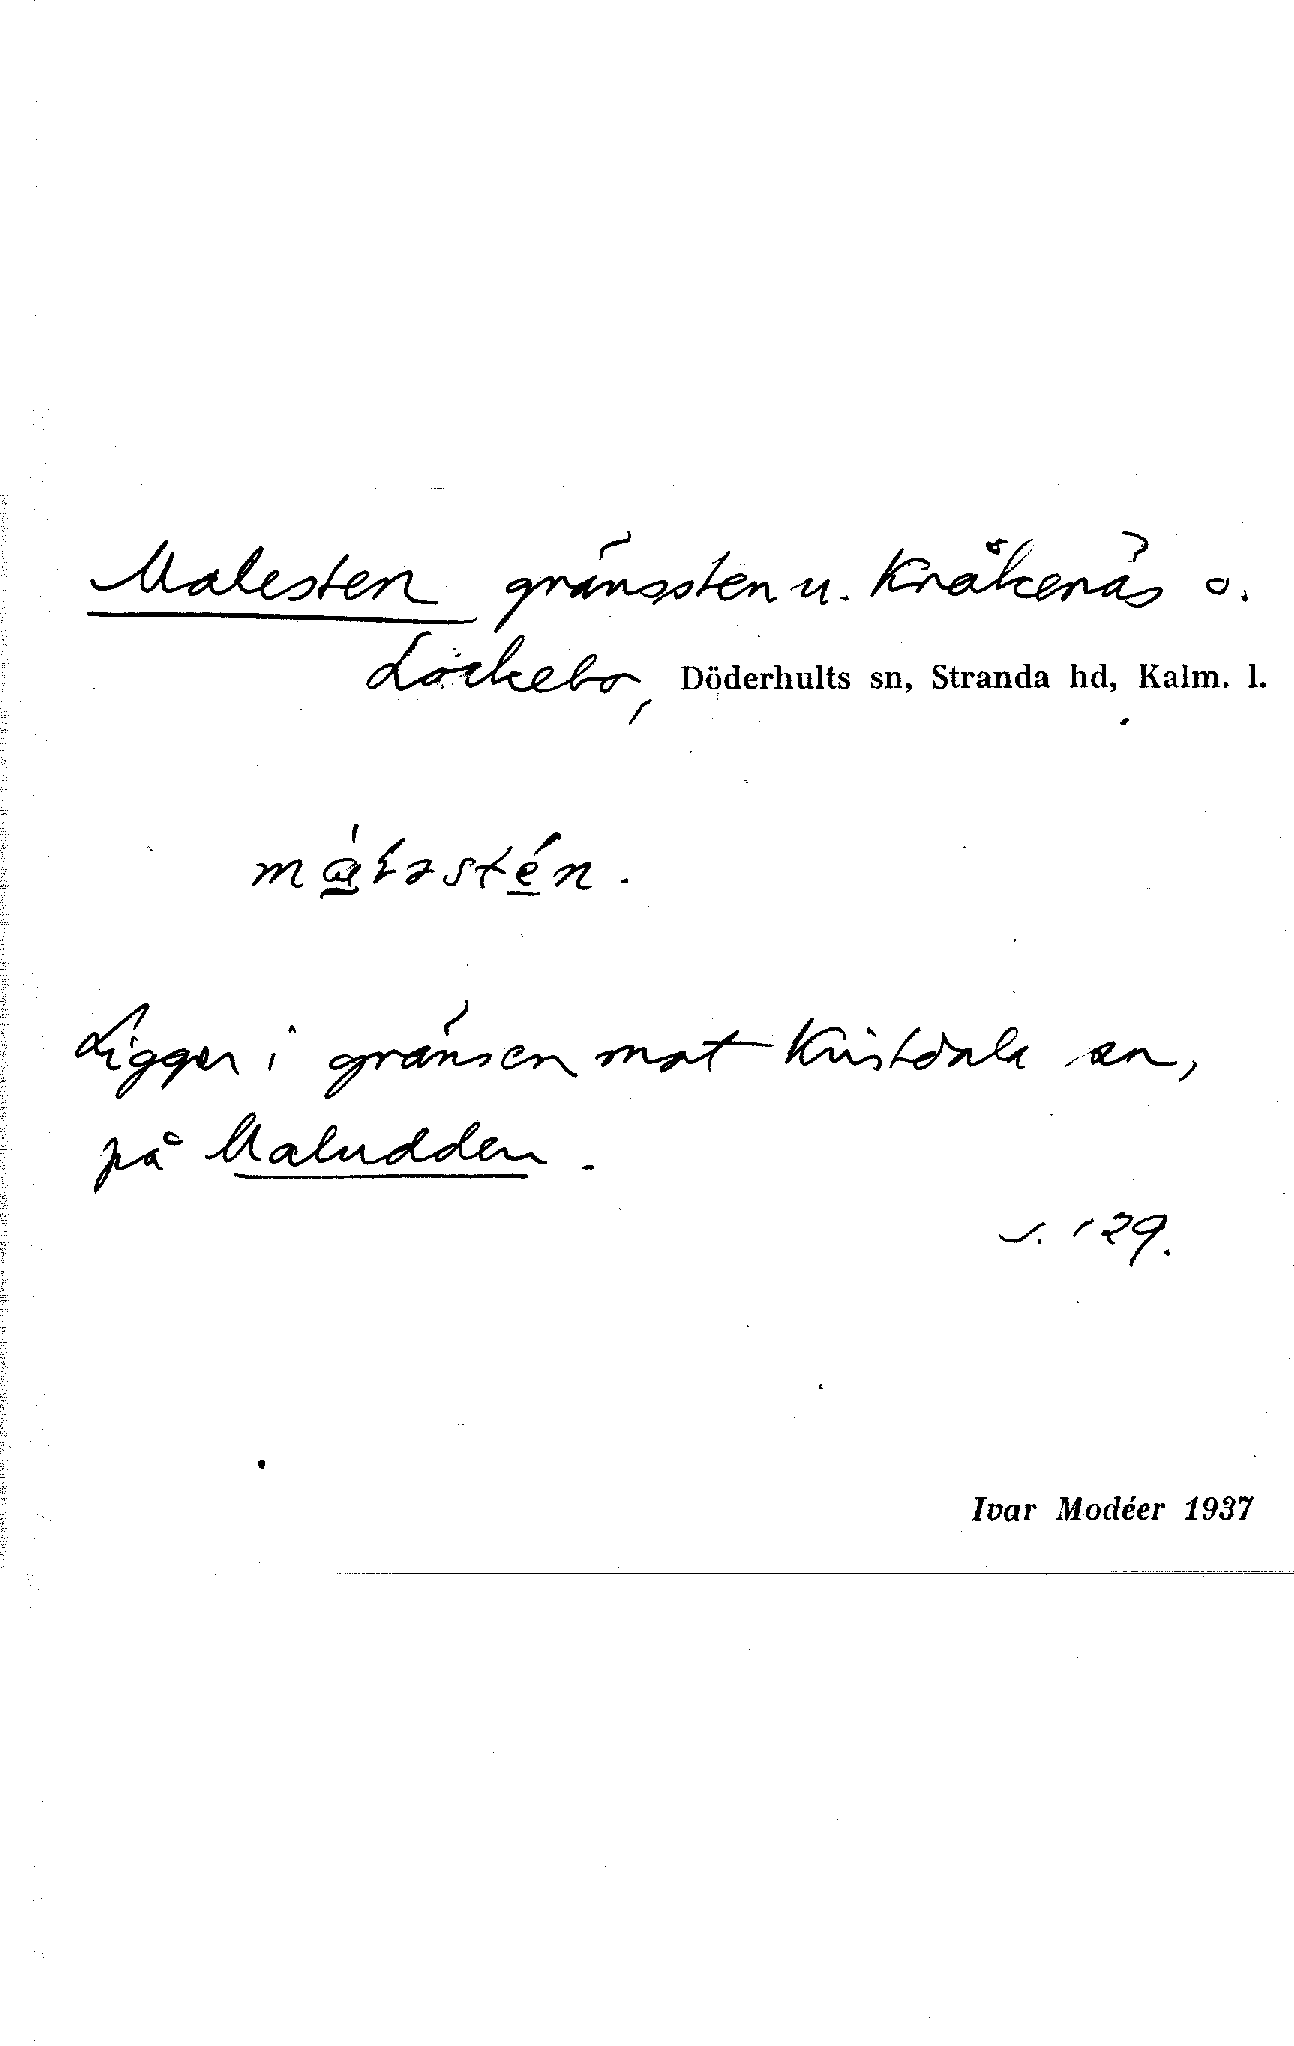 Malesten gränssten u. Kråkenäs o.
Löckebo, Döderhults sn, Stranda hd, Kalm. l.
Ligger i gränsen mot Kristdala sn,
på Maludden.
s. 129.
Ivar Modéer 1937